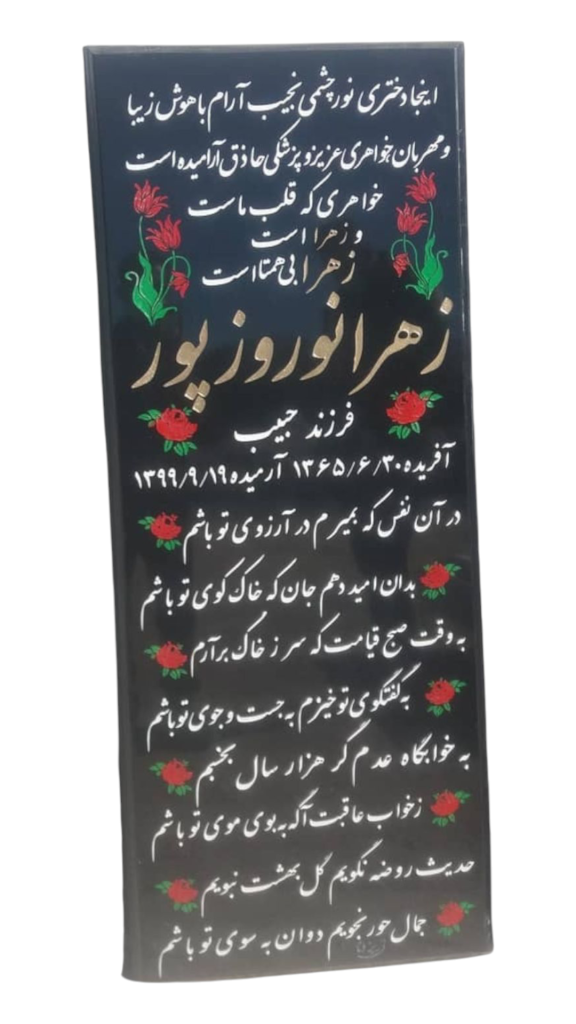 اینجا دختری نور چشمی نجیب آرام باهوش زیبا
و مهربان خواهری عزیز و پزشکی حاذق آرامیده است
خواهری که قلب ماست
و زهرا است
زهرا بی همتا است
زهرا نوروز پور
فرزند حبیب
آفریده ۱۳۶۵/۶/۳۰ آرمیده ۱۳۹۹/۹/۱۹
در آن نفس که بمیرم در آرزوی تو باشم
بدان امید دهم جان که خاک کوی تو باشم
به وقت صبح قیامت که سر ز خاک برآرم
به گفتگوی تو خیزم به جست و جوی تو باشم
به خوابگاه عدم گر هزار سال بخسبم
زخواب عاقبت آگه به بوی موی تو باشم
حدیث روضه نگویم گل بهشت نبویم
جمال حور نجویم دوان به سوی تو باشم